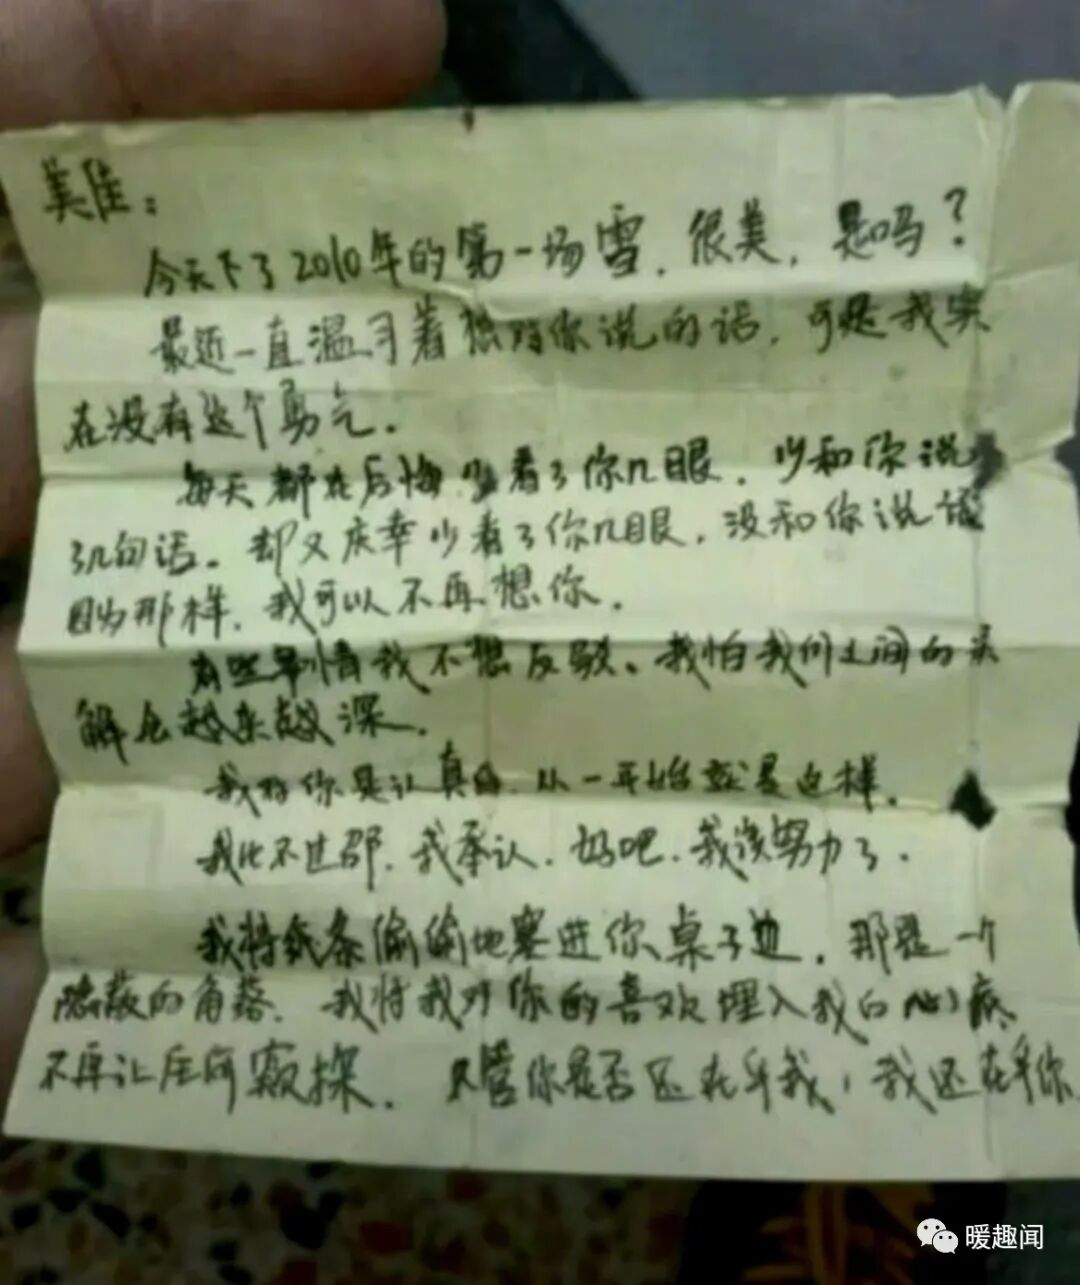 美佳：
今天下了2010年的第一场雪，很美，是吗？
最近一直温习着想对你说的话，可是我实
在没有这个勇气。
每天都在后悔少看了你几眼，少和你说
了几句话。却又庆幸少看了你几眼，没和你说话
因为那样，我可以不再想你。
有些事情我不想反驳、我怕我们之间的误
解会越来越深。
我对你是认真的，从一开始就是这样。
我比不过邵，我承认，好吧，我该努力了。
我将纸条偷偷地塞进你桌子边，那是一个
隐蔽的角落，我将我对你的喜欢埋入我的心底
不再让任何窥探。不管你是否还在乎我，我还在乎你
暖趣闻